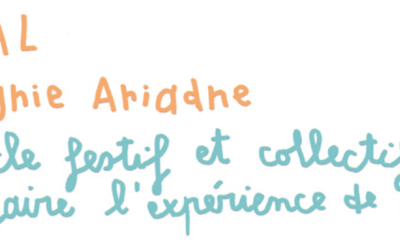 AL
gnie Ariadne
cle festif et collectif
faire l'expérience de